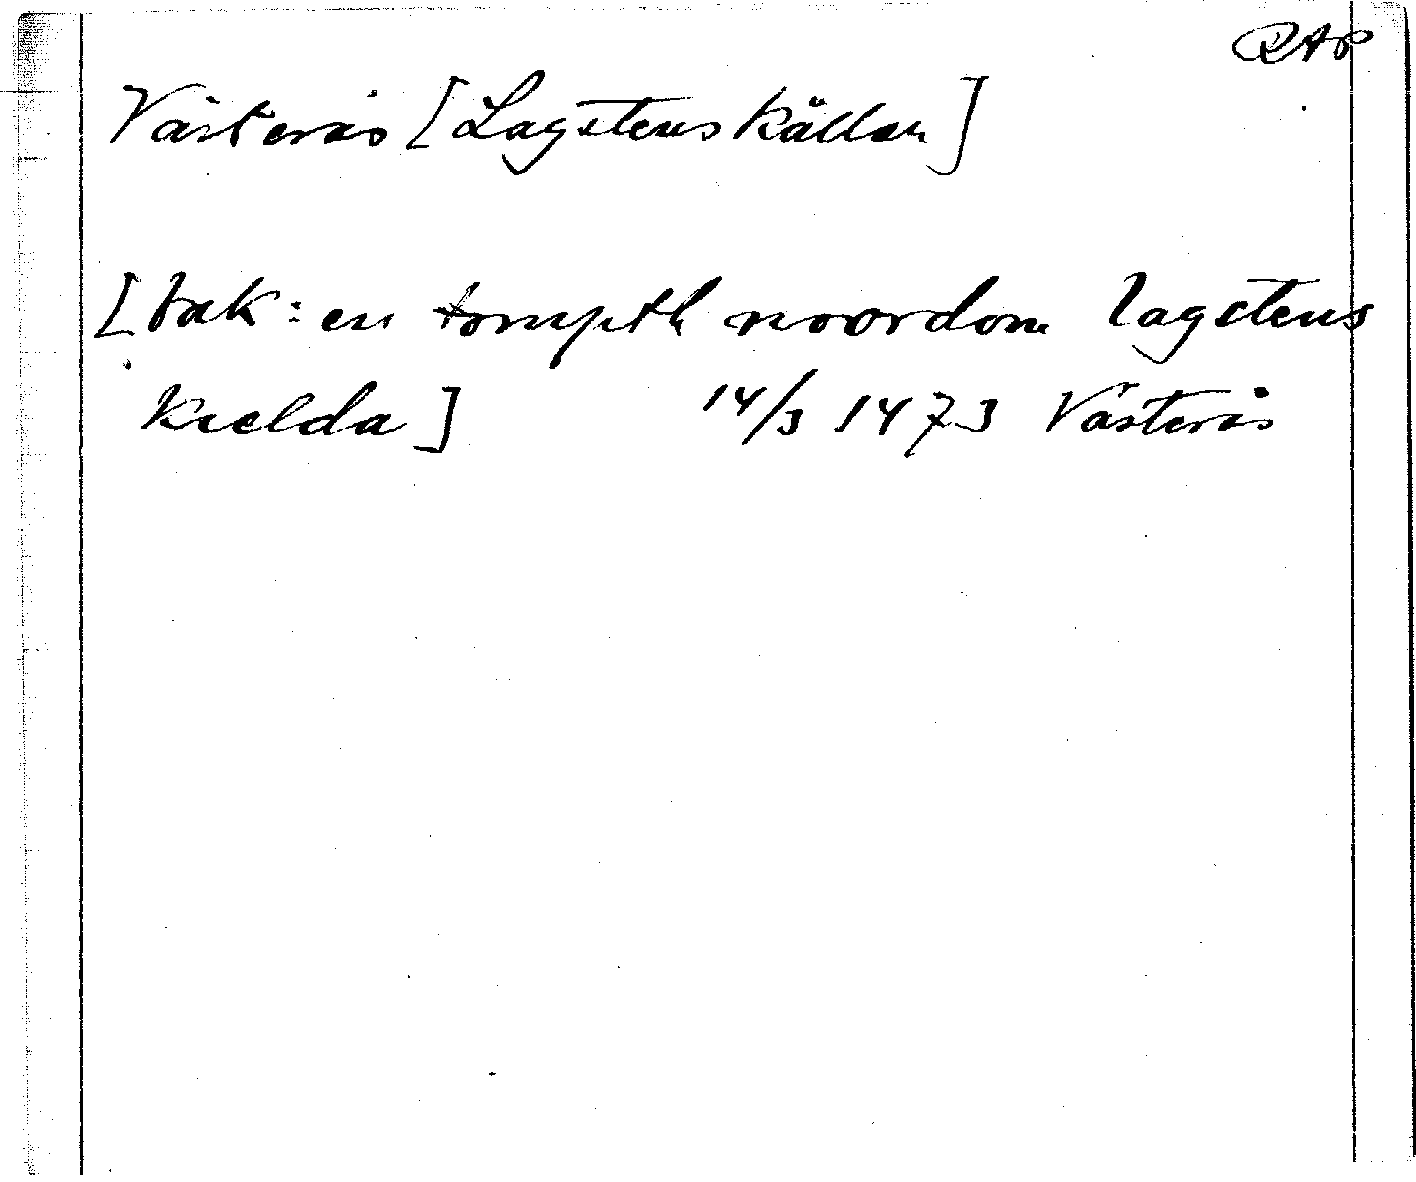 RAP
Västerås [Lagstens källan]
[bak: en tompth noordom lagstens
kielda] 14/3 1473 Västerås